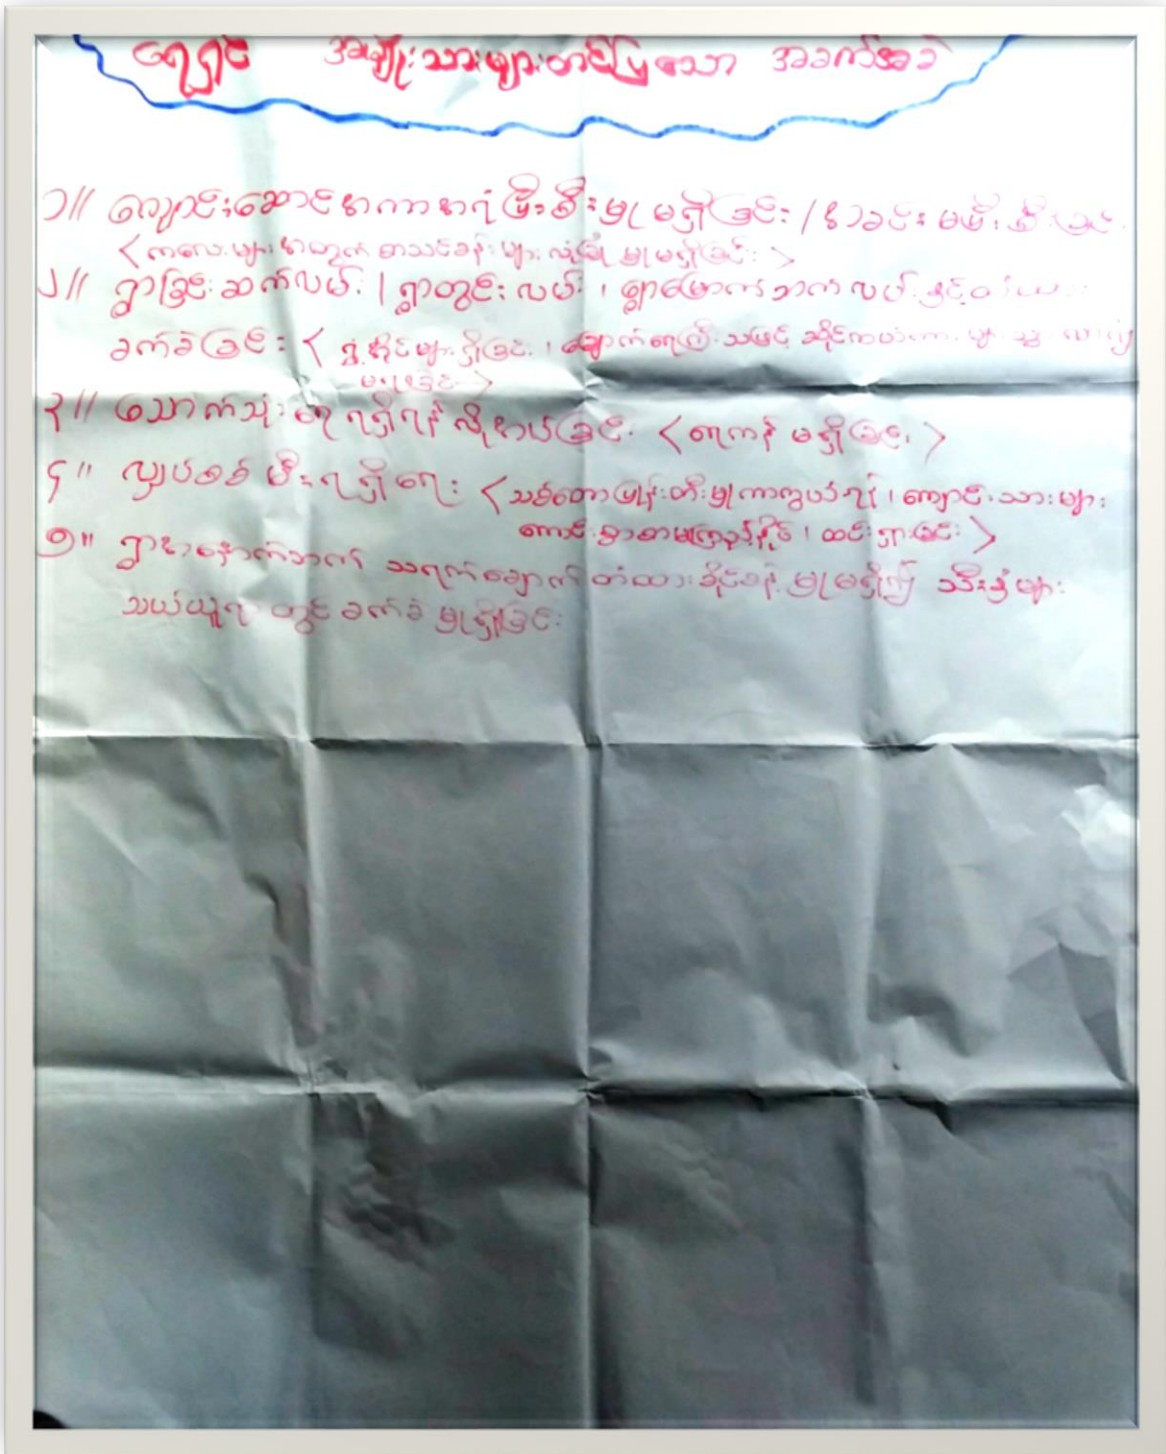 ရေရှင် အမျိုးသားများတင်ပြသော အခက်အခဲ
၁။ ကျောင်းဆောင်အကာအရံ ပြီးစီးမှု မရှိခြင်း / အခင်း မပြီးစီးခြင်း
< ကလေးများအတွက် စာသင်ခန်းများ လုံခြုံမှု မရှိခြင်း >
၂။ ရွာခြင်းဆက်လမ်း / ရွာတွင်းလမ်း၊ ရွာမြောက်ဘက်လမ်းနှင့် တံတား
ခက်ခဲခြင်း < ရွှံ့အိုင်များရှိခြင်း၊ ချောက်ရေကြီးသဖြင့် ဆိုင်ကယ်
မရခြင်း >
၃။ သောက်သုံးရေ ရရှိရန် လိုအပ်ခြင်း < ရေကန် မရှိခြင်း >
၄။ လျှပ်စစ် မီးရရှိရေး < သစ်တောပြုန်းတီးမှုကာကွယ်ရန်၊ ကျောင်းသားများ
ကောင်းစွာစာမကြည့်နိုင်၊ ထင်းရှားခြင်း >
၅။ ရွာအနောက်ဘက် သရက်ချောက် တံထားခိုင်ခန့်မှုမရှိ၍ သီးနှံများ
သယ်ယူရာတွင် ခက်ခဲမှုရှိခြင်း